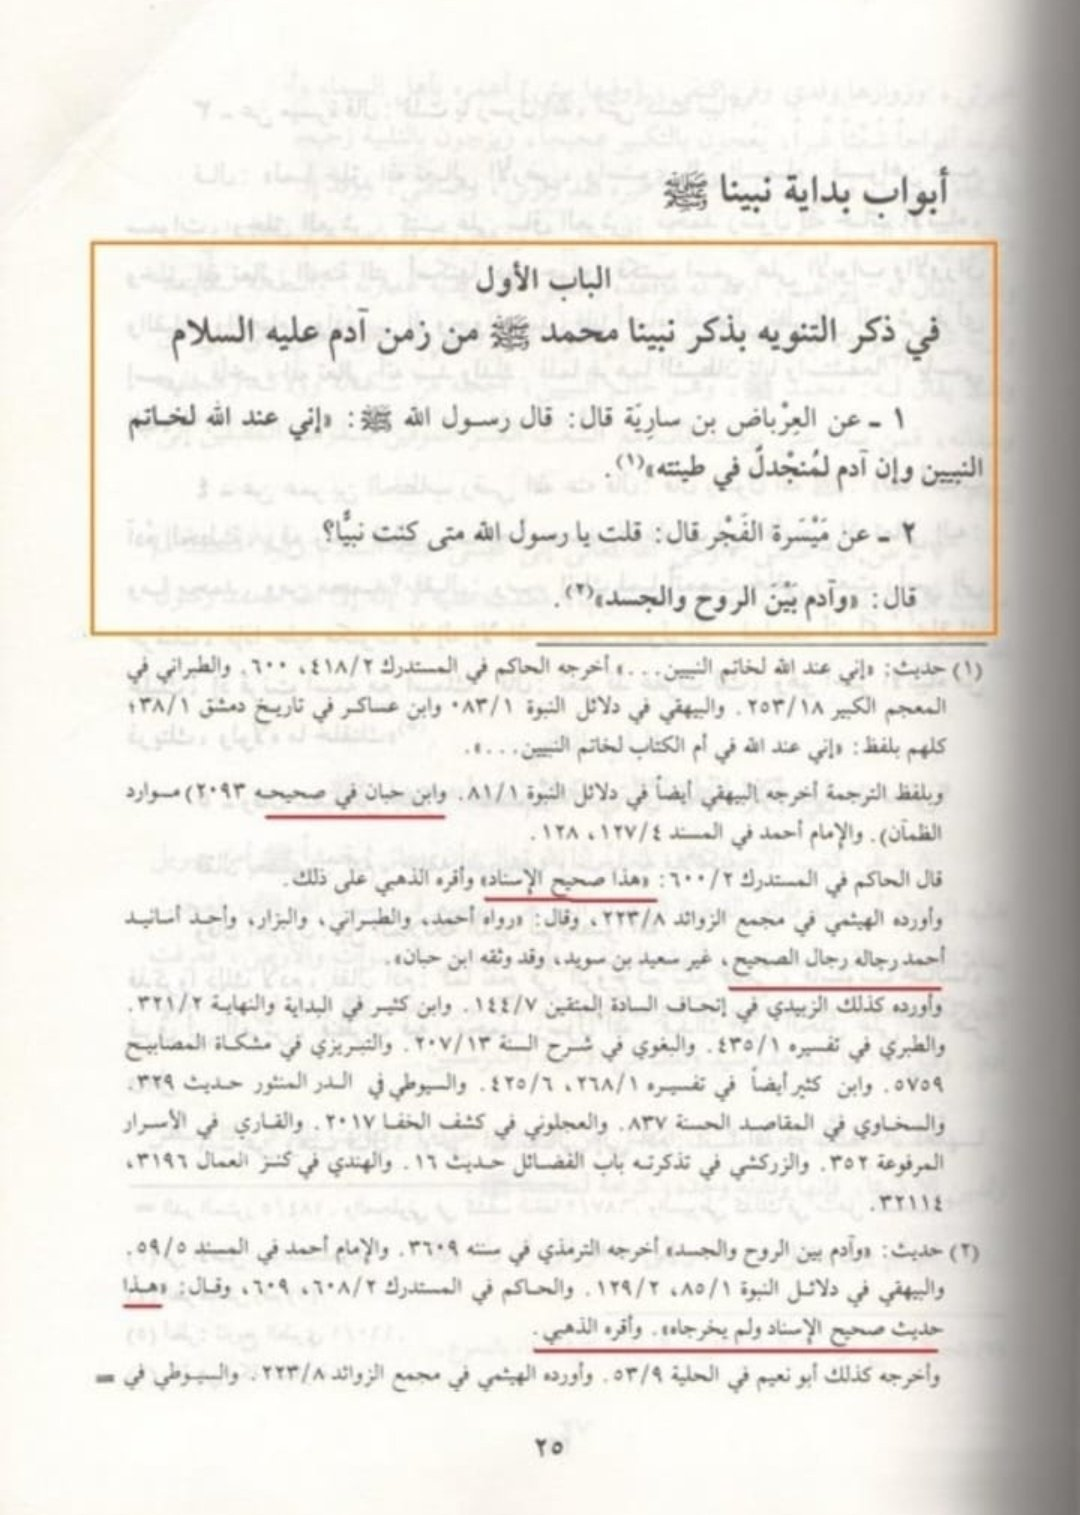 أبواب بداية نبينا ﷺ
الباب الأول
في ذكر التنويه بذكر نبينا محمد ﷺ من زمن آدم عليه السلام
١ ـ عن العِرْباض بن سارِيَة قال: قال رسول الله ﷺ: «إني عند الله لخاتم
النبيين وإن آدم لمُنْجْدلٌ في طينته»(١).
٢ ـ عن مَيْسَرة الفَجْر قال: قلت يا رسول الله متى كنت نبيًّا؟
قال: «وآدم بَيْنَ الروح والجسد»(٢).
(١) حديث: «إني عند الله لخاتم النبيين...» أخرجه الحاكم في المستدرك ٤١٨/٢، ٦٠٠. والطبراني في
المعجم الكبير ٢٥٣/١٨. والبيهقي في دلائل النبوة ٠٨٣/١ وابن عساكر في تاريخ دمشق ٣٨/١؛
كلهم بلفظ: «إني عند الله في أم الكتاب لخاتم النبيين...».
وبلفظ الترجمة أخرجه البيهقي أيضاً في دلائل النبوة ٨١/١. وابن حبان في صحيحه ٢٠٩٣) موارد
الظمآن). والإمام أحمد في المسند ١٢٧/٤، ١٢٨.
قال الحاكم في المستدرك ٦٠٠/٢: «هذا صحيح الإسناد» وأقره الذهبي على ذلك.
وأورده الهيثمي في مجمع الزوائد ٢٢٣/٨، وقال: «رواه أحمد، والطبراني، والبزار، وأحد أسانيد
أحمد رجاله رجال الصحيح، غير سعيد بن سويد، وقد وثقه ابن حبان».
وأورده كذلك الزبيدي في إتحاف السادة المتقين ١٤٤/٧. وابن كثير في البداية والنهاية ٣٢١/٢.
والطبري في تفسيره ٤٣٥/١. والبغوي في شرح السنة ٢٠٧/١٣. والتبريزي في مشكاة المصابيح
٥٧٥٩. وابن كثير أيضاً في تفسيره ٢٦٨/١، ٤٢٥/٦. والسيوطي في الدر المنثور حديث ٣٢٩.
والسخاوي في المقاصد الحسنة ٨٣٧. والعجلوني في كشف الخفا ٢٠١٧. والقاري في الأسرار
المرفوعة ٣٥٢. والزركشي في تذكرته باب الفضائل حديث ١٦. والهندي في كنز العمال ٣١٩٦،
٣٢١١٤.
(٢) حديث: «وآدم بين الروح والجسد» أخرجه الترمذي في سننه ٣٦٠٩. والإمام أحمد في المسند ٥٩/٥.
والبيهقي في دلائل النبوة ٨٥/١، ١٢٩/٢. والحاكم في المستدرك ٦٠٨/٢، ٦٠٩، وقال: «هذا
حديث صحيح الإسناد ولم يخرجاه». وأقره الذهبي.
وأخرجه كذلك أبو نعيم في الحلية ٥٣/٩. وأورده الهيثمي في مجمع الزوائد ٢٢٣/٨. والسيوطي في =
٢٥